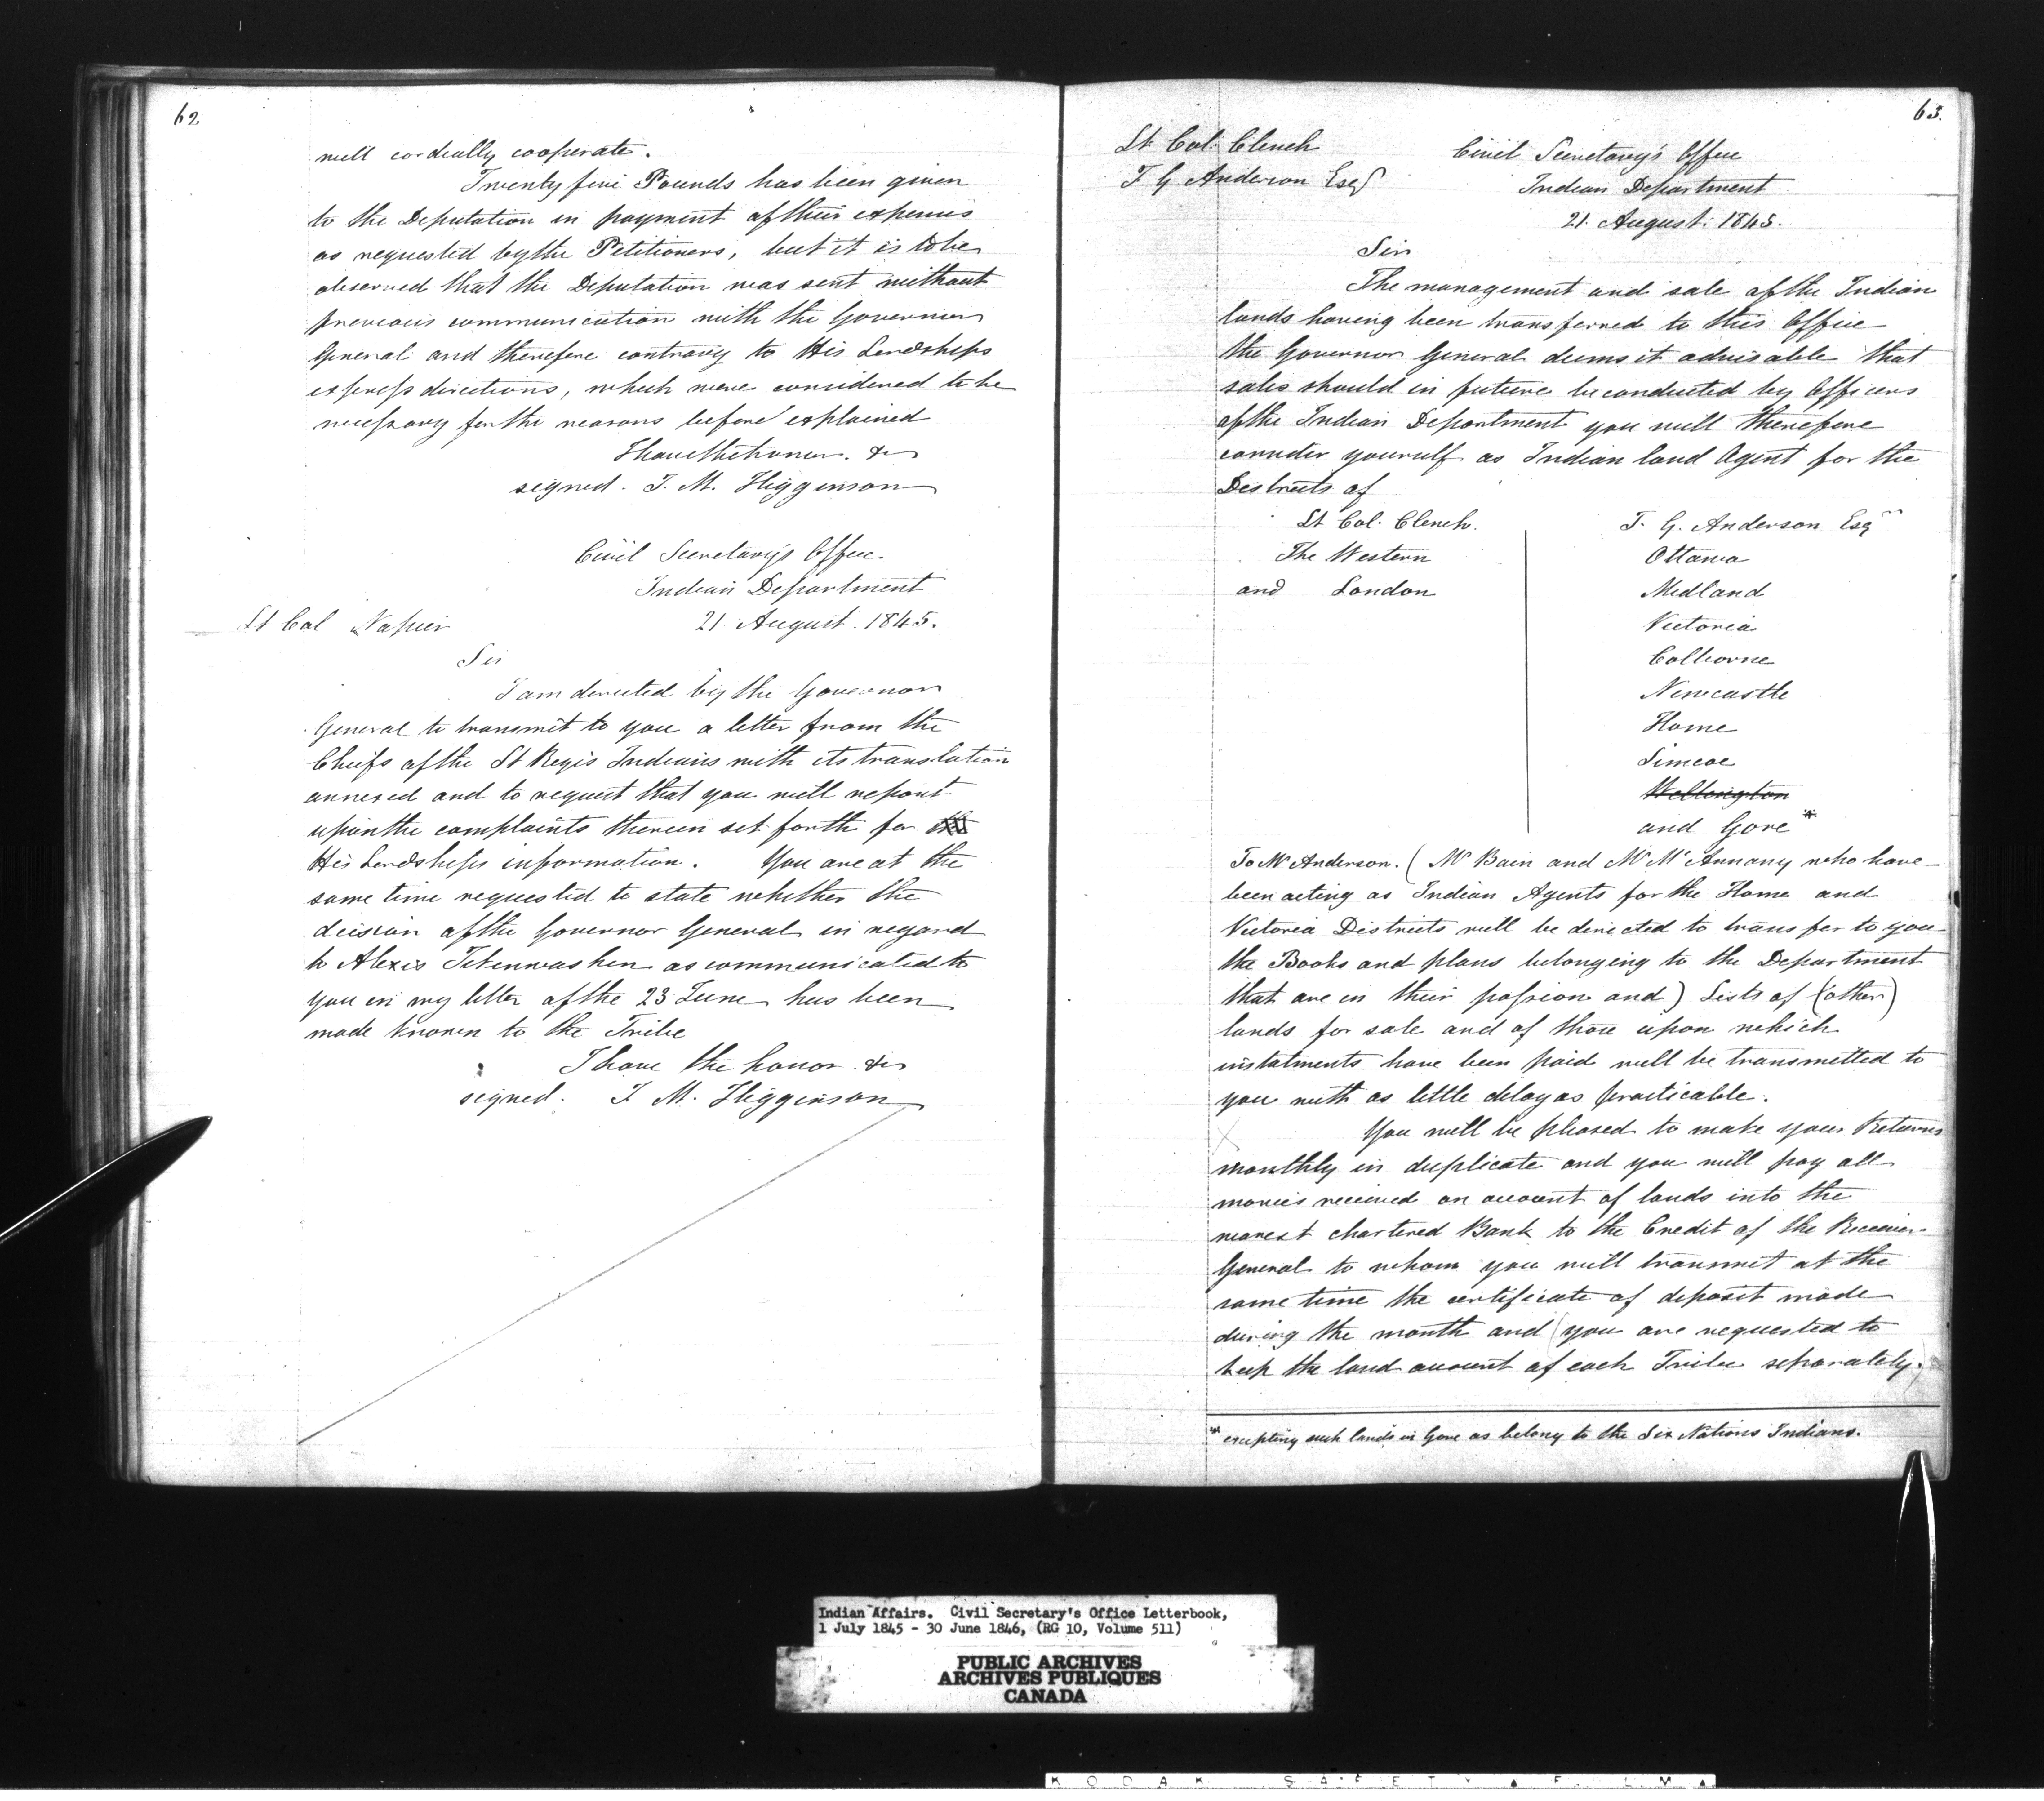 62
will cordially cooperate.
Twenty five Pounds has been given
to the Deputation in payment of their expenses
as requested by the Petitioners, but it is to be
observed that the Deputation was sent without
previous communication with the Governor
General and therefore contrary to His Lordships
express directions, which were considered to be
necessary for the reasons before explained
I have the honor. &c
signed. J. M. Higginson
Civil Secretary's Office
Indian Department
Lt Col Napier 21 August. 1845.
Sir
I am directed by the Governor
General to transmit to you a letter from the
Chiefs of the St Regis Indians with its translation
annexed and to request that you will report
upon the complaints therein set forth for
His Lordships information. You are at the
same time requested to state whether the
decision of the Governor General in regard
to Alexis as communicated to
you in my letter of the 23 June has been
made known to the Tribe
I have the honor &c
signed. J M. Higginson
63.
Lt Col. Clench
T G Anderson Esqr
Civil Secretary's Office
Indian Department
21. August. 1845.
Sir
The management and sale of the Indian
lands having been transferred to this Office
the Governor General deems it advisable that
sales should in future be conducted by Officers
of the Indian Department you will therefore
consider yourself as Indian land Agent for the
Districts of
Lt Col. Clench.
The Western
and London
T. G. Anderson Esqr
Ottawa
Midland
Victoria
Colborne
Newcastle
Home
Simcoe
Wellington
and Gore *
To Mr Anderson. (Mr Bain and Mr McAnnany who have
been acting as Indian Agents for the Home and
Victoria Districts will be directed to transfer to you
the Books and plans belonging to the Department
that are in their possion and) Lists of (other)
lands for sale and of those upon which
instalments have been paid will be transmitted to
you with as little delay as practicable.
You will be pleased to make your Returns
monthly in duplicate and you will pay all
monies received on account of lands into the
nearest chartered Bank to the Credit of the Receiver
General to whom you will transmit at the
same time the certificate of deposit made
during the month and (you are requested to
keep the land account of each Tribe separately.)
* excepting such lands in Gore as belong to the Six Nations Indians.
Indian Affairs. Civil Secretary's Office Letterbook,
1 July 1845 - 30 June 1846, (RG 10, Volume 511)
PUBLIC ARCHIVES
ARCHIVES PUBLIQUES
CANADA
KODAK SAFETY